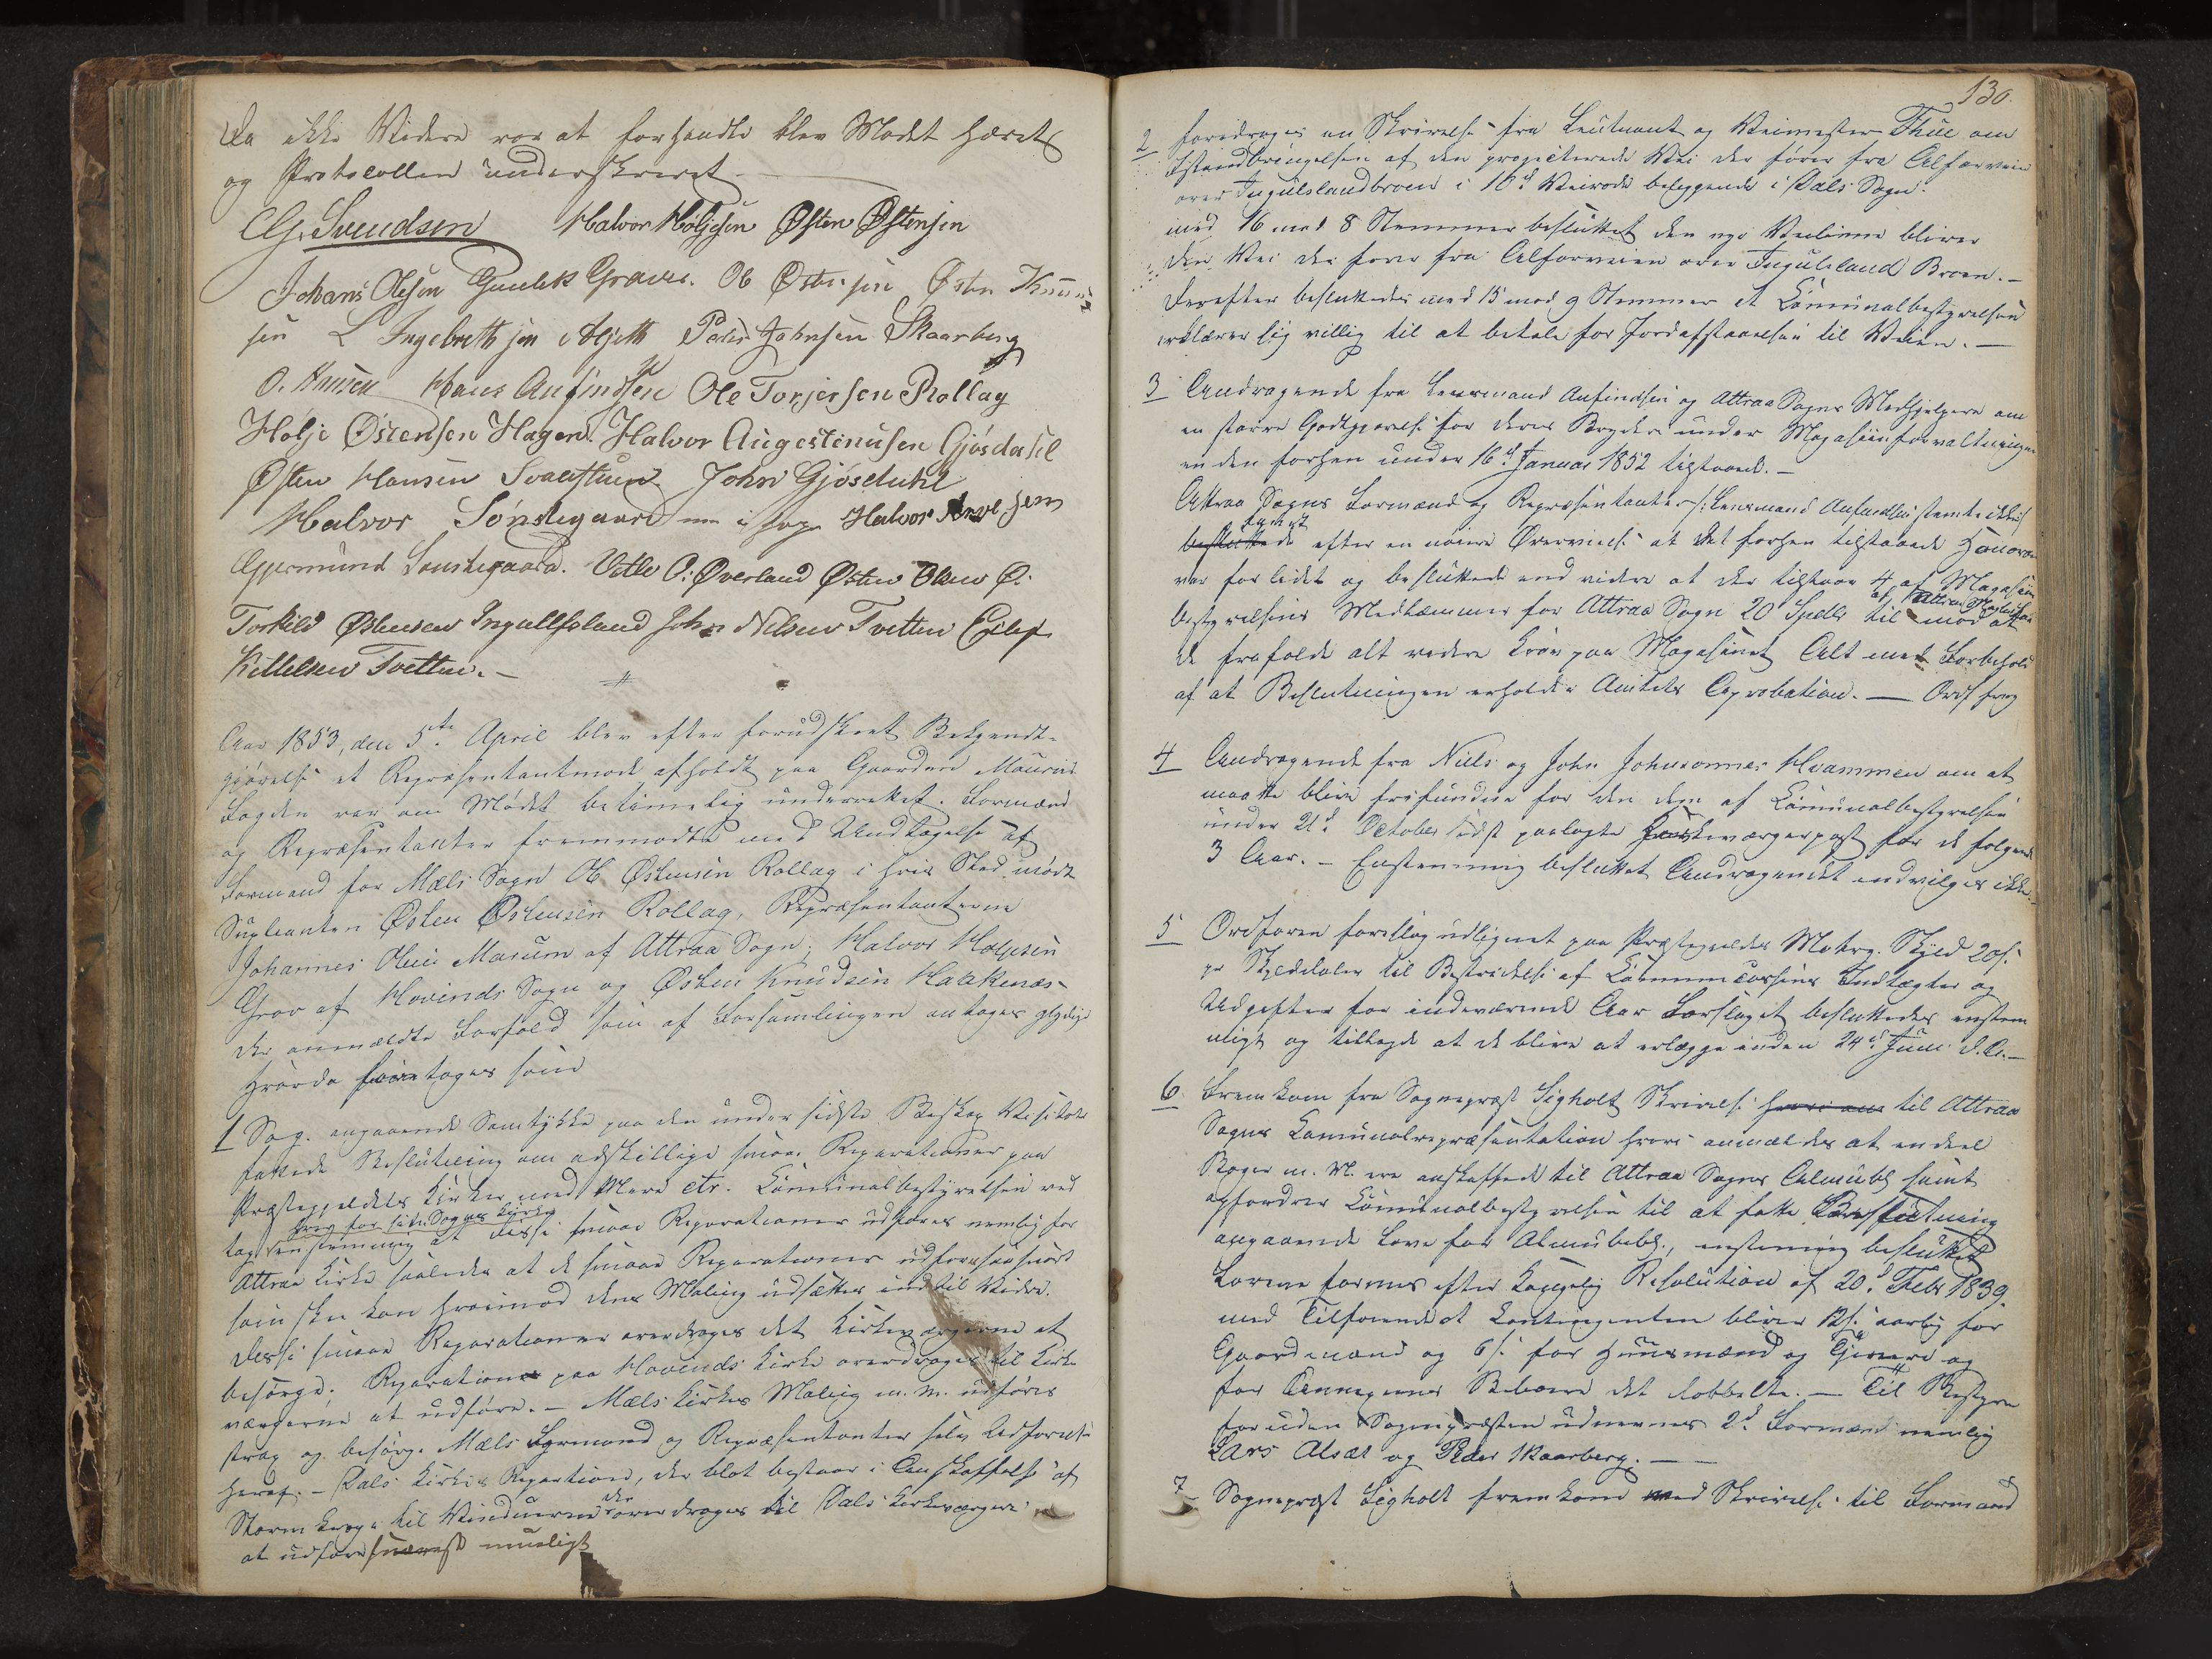 Da ikke Videre var at forhandle blev Mødet hævet
og Protocollen underskrevet.
CG. Svendsen Halvor Høljesen Østen Østensen
Johans Olesen Gunlek Graver. Ob Østensen Østen Knud
sen L Ingebrethsen Peder Johnsen Skaarberg
O. Knusen Hans Anfindsen Ole Torjersen Rollag
Hølje Østensen Hagen. Halvor Augestinusen Gjøsdahl
Østen Hansen John Gjøsduhl
Halvor Sønstegaard Halvor
Sønstegaard. Vetle O. Øverland Østen Olsen Ø.
Torkild Østensen Ingullfsland John Nilsen Tvetten Eilef
Kittelsen Tvetten.
Aar 1853, den 5te April blev efter forudskeet Bekjendt-
gjørelse et Repræsentantmøde afholdt paa Gaarden
Fogden var om Mødet betimelig underrettet. Formænd
og Repræsentanter fremmødte med Undtagelse af
Formand for Mæls Sogn Ob Østensen Rollag i hvis Sted mødte
Supleanten Østen Østensen Rollag, Repræsentanterne
Johannes Marum af Attraa Sogn, Halvor
Grov af Hovinds Sogn og Østen Knudsen Haakenæs
der anmeldte Forfald som af Forsamlingen antages gyldige
hvorda foretoges som
1 Sag. angaaende Samtykke paa den under sidste Biskop Visitats
fattede Beslutning om adskillige smaae Reparationer paa
Præstegjeldets Kirker med Mere etc. Communalbestyrelsen ved
hver for sit Sogns Kirke
tog enstemmig at disse smaae Reparationer udføres nemlig for
Attraa Kirke saaledes at de smaae Reparationer udføres saasnart
som skee kan hvorimod dens Maling udsættes indtil Videre.
Disse smaae Reparationer overdrages det Kirkeværgerne at
besørge. Reparationer paa Hovinds Kirke overdrages til Kirke
værgerne at udføre. – Mæls Kirkes Maling m.m. udføres
strax og besørge Mæls Formænd og Repræsentanter selv Udførelse
heraf. – Dals Kirkes Reparation, der blot bestaar i Anskaffelse af
Storm kroge til Vinduerne der overdrages til Dals Kirkeværgere
at udføre snarest mueligt
130.
2 foredroges en Skrivelse fra Leutnant og Veimester Thue om
Istandbringelsen af den projecterede Vei der fører fra Alfarveien
over Ingulslandbroen i 16d Veirode beliggende i Dals Sogn.
med 16 mod 8 Stemmer besluttet den nye Veilinie bliver
den Vei der fører fra Alfarveien over Ingulsland Broen.–
Derefter besluttedes med 15 mod 9 Stemmer at Communalbestyrelsen
erklærer sig villig til at betale for Jordafstaaelsen til Veien.–
3 Andragende fra Lensmand Anfindsen og Attraa Sogns Medhjelpere om
en større Godtgjørelse for deres Bryderi under Magasinforvaltningen
en den forhen under 16d Januar 1852 tilstaaede.–
Attraa Sogns Formænd og Repræsentanter /: Lensmand Anfindsen stemte ikke :/
besluttede efter en nøiere Overveielse at det forhen tilstaaede Honorar
var for lidet og besluttede end videre at der tilstaaes 4 af Magasin
bestyrelsens Medlæmmer for Attraa Sogn 20 Spdlr til mod at
de frafalde alt videre Krav paa Magasinet Alt med Forbehold
af at Beslutningen erholder Amtets Aprobation.–
4 Andragende fra Niels og John Johnsønner Hvammen om at
maatte blive frifundne for den dem af Communalbestyrelsen
under 21d October sidst paalagte for de følgende
3 Aar. – Enstemmig besluttet Andragendet indvilges ikke.–
5 Ordføren foreslog udlignet paa Præstegjeldets Matrg. Skyld 20 s.
pr Skylddaler til Bestridelse af Communecassens Indtægter og
Udgifter for indeværende Aar Forslaget besluttedes enstem
migt og tillagde at de blive at erlægge inden 24d Juni d.A.–
6 Fremkom fra Sognepræst Sigholt Skrivelse til Attraa
Sogns Communalrepræsentation hvori anmeldes at en deel
Bøger m. M. ere anskaffede til Attraa Sogns Almuebbl samt
opfordrer Communalbestyrelsen til at fatte Beslutning
angaaende Love for Almuebibl., enstemmig besluttet
Lovene formes efter Kongelig Resolution af 20d Febr 1839.
med Tilføiende at Contingenten bliver 12 s. aarlig for
Gaardmænd og 6 s. for Huusmænd og Tjenere og
for Annexernes Beboere det dobbelte. – Til Bestyre
foruden Sognepræsten udnevnes 2d Formænd nemlig
Lars Alsæt og Peder Skaarberg. –
7 Sognepræst Sigholt fremkom med Skrivelse til Formand